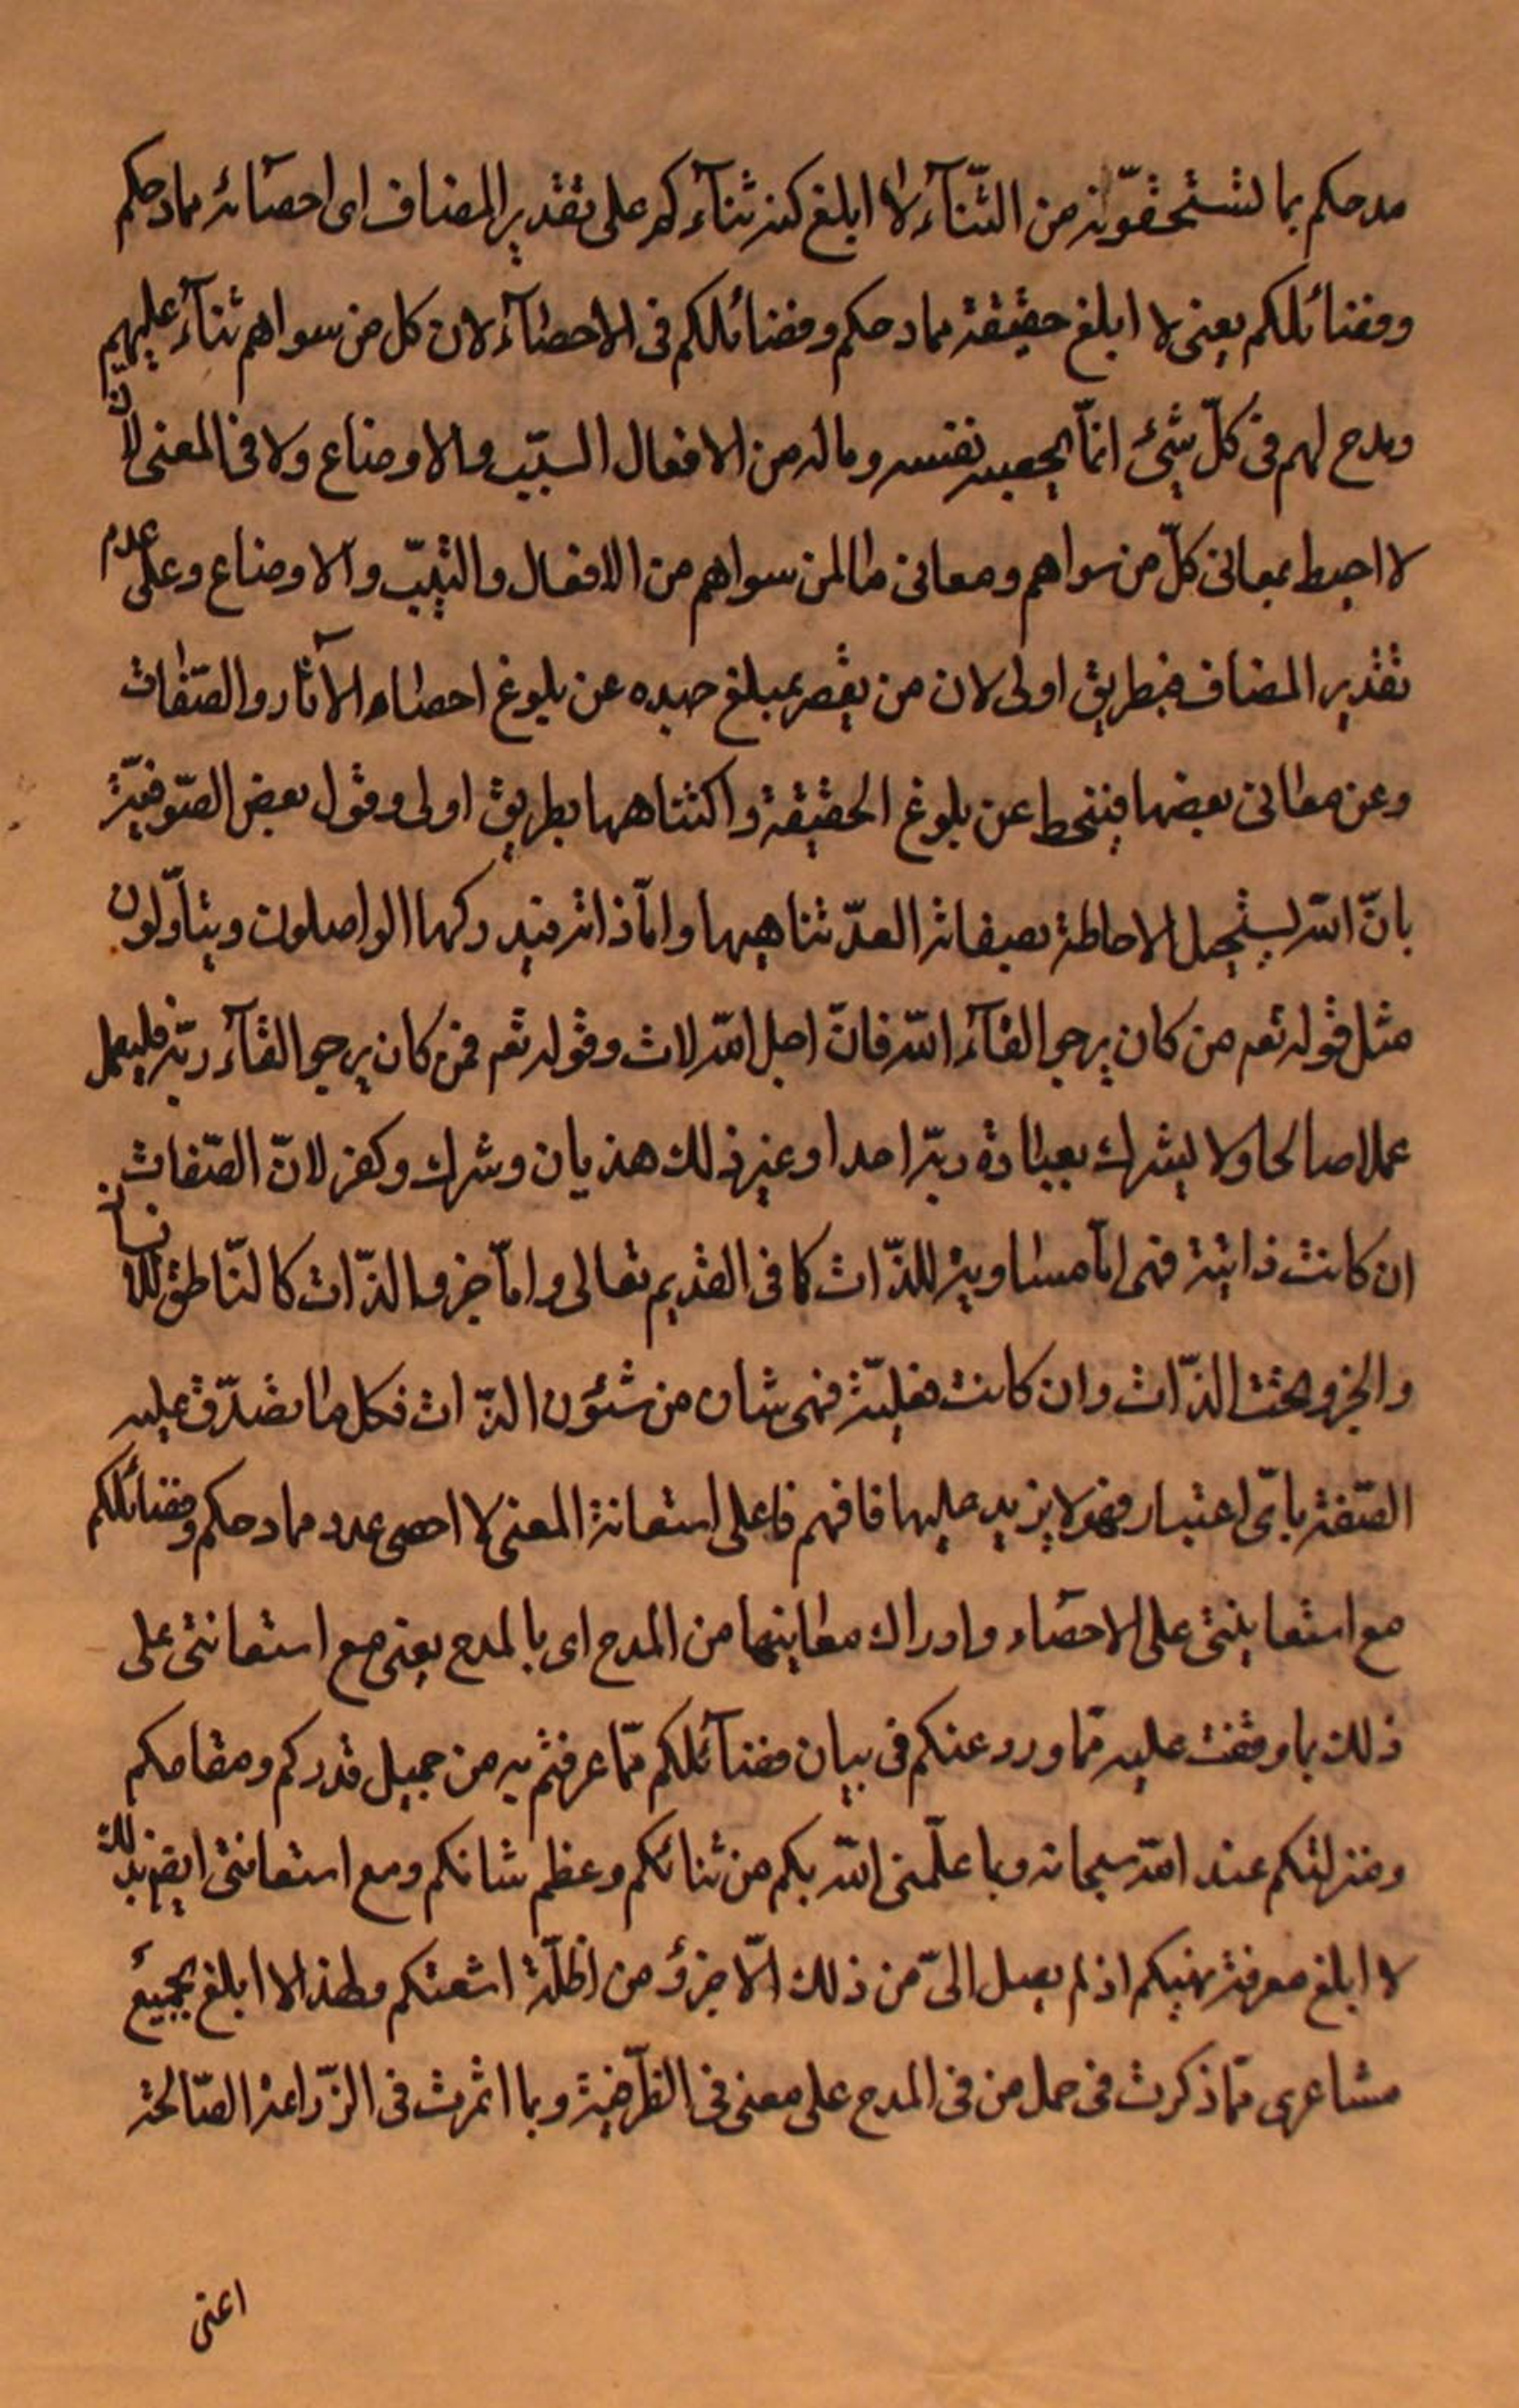 مدحكم بما تستحقّونه من الثّنآء لا ابلغ كنه ثنآءكم على تقدير المضاف اى احصآئه ممادحكم
وفضائلكم يعنى لا ابلغ حقيقة ممادحكم وفضائلكم فى الاحصآء لان كل من سواهم ثنآء عليهم
ومدح لهم فى كلّ شئ انمّا بجميع نفسه وماله من الافعال النسب والاوضاع ولا فى المعنى لانّ
لا احيط بمعانى كلّ من سواهم ومعانى ما لمن سواهم من الافعال والنسب والاوضاع وعلى عدم
تقدير المضاف فبطريق اولى لان من يقصر بمبلغ جهده عن بلوغ احصاء الآثار والصّفات
وعن معانى بعضها فينحط عن بلوغ الحقيقة واكتناهها بطريق اولى وقول بعض الصّوفيّة
بانّ اللّه يستحيل الاحاطة بصفاته لعدّ تناهيها وامّا ذاته فيدركها الواصلون ويتأوّلون
مثل قوله تعم من كان يرجو القآء اللّه فانّ اجل اللّه لات وقوله تعم فمن كان يرجو القآء ربّه فليعمل
عملا صالحا ولا يشرك بعبادة ربّه احدا وغير ذلك هذيان وشرك وكفر لانّ الصّفات
ان كانت ذاتية فهى امّا مساوية للذّات كما فى القديم تعالى وامّا جزو الذّات كالنّاطق للانسان
والجزو تحت الذّات وان كانت فعليّة فهى شان من شئون الذّات فكل ما تصدّق عليه
الصّفة باىّ اعتبار فهو لا يزيد عليها فافهم فاعلى استعانة المعنى لا احصى عدد ممادحكم وفضائلكم
مع استعانتى على الاحصاء وادراك معانيها من المدح اى بالمدح يعنى مع استعانتى على
ذلك بما وقفت عليه ممّا ورد عنكم فى بيان فضآئلكم ممّا عرفتم به من جميل قدركم ومقامكم
ومنزلتكم عند اللّه سبحانه وبما علّمنى اللّه بكم من ثنائكم وعظم شانكم ومع استعانتى ايضا بذلك
لا ابلغ معرفة نهيكم اذ لم يصل الىّ من ذلك الّا جزؤ من اظلّة اشعتكم ولهذا لا ابلغ بجميع
مشاعرى ممّا ذكرت فى حمل من فى المدح على معنى فى الظّرفية وبما اثمرت فى الزّراعة الصّالحة
اعنى